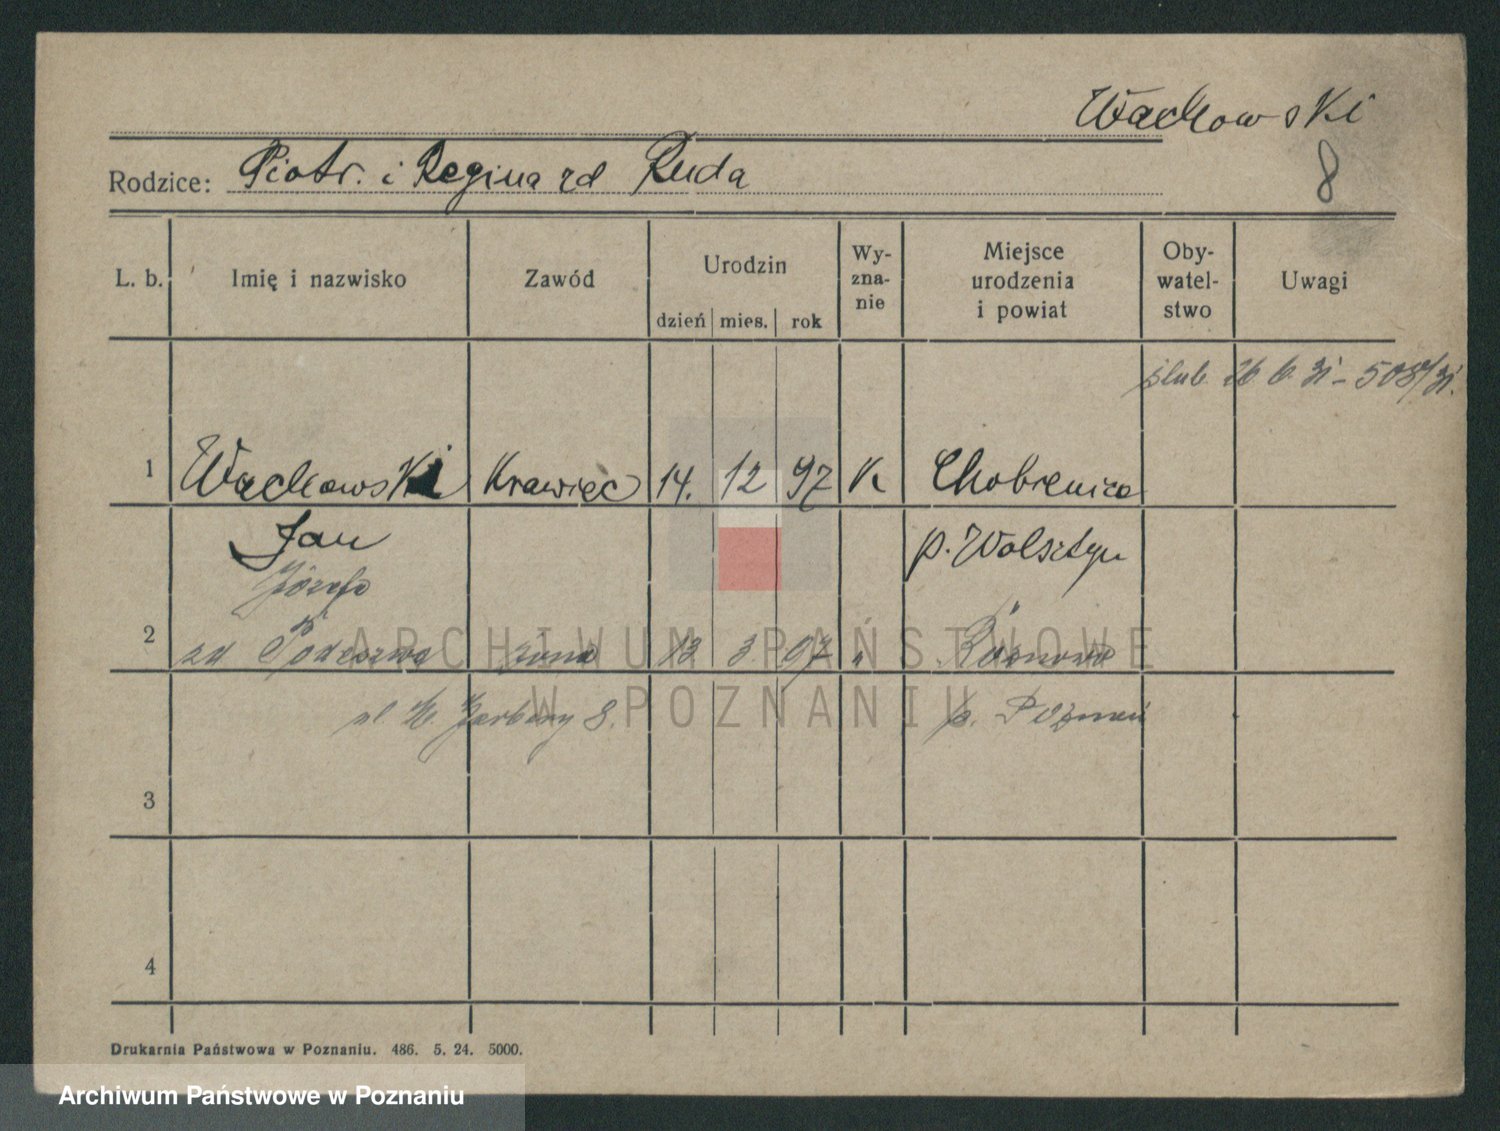 Wachowski
8
Rodzice: Piotr. i Regina zd Ruda
L. b. Imię i nazwisko Zawód Urodzin dzień mies. rok Wy-zna-nie Miejsce urodzenia i powiat Oby-watel-stwo Uwagi
ślub 26 6. 31 - 508/31.
1 Wachowski Krawiec 14. 12 97 K Chobienice
Jan p. Wolsztyn
Józefa
2 zd Podeszwa żona 13 3. 97 " Rosnowo
ul. W. Garbary 8. p. Poznań
3
4
Drukarnia Państwowa w Poznaniu. 486. 5. 24. 5000.
ARCHIWUM PAŃSTWOWE
W POZNANIU
Archiwum Państwowe w Poznaniu